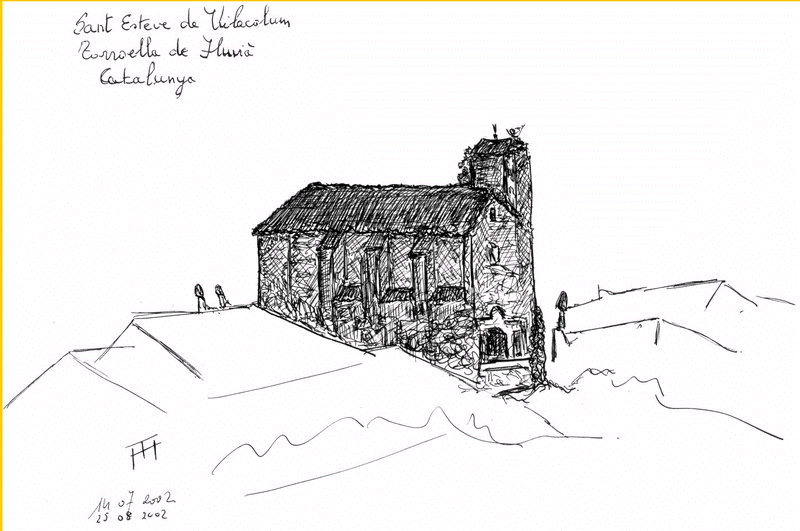 Sant Esteve de Vilacolum
Torroella de Fluvià
Catalunya
14 07 2002
25 08 2002